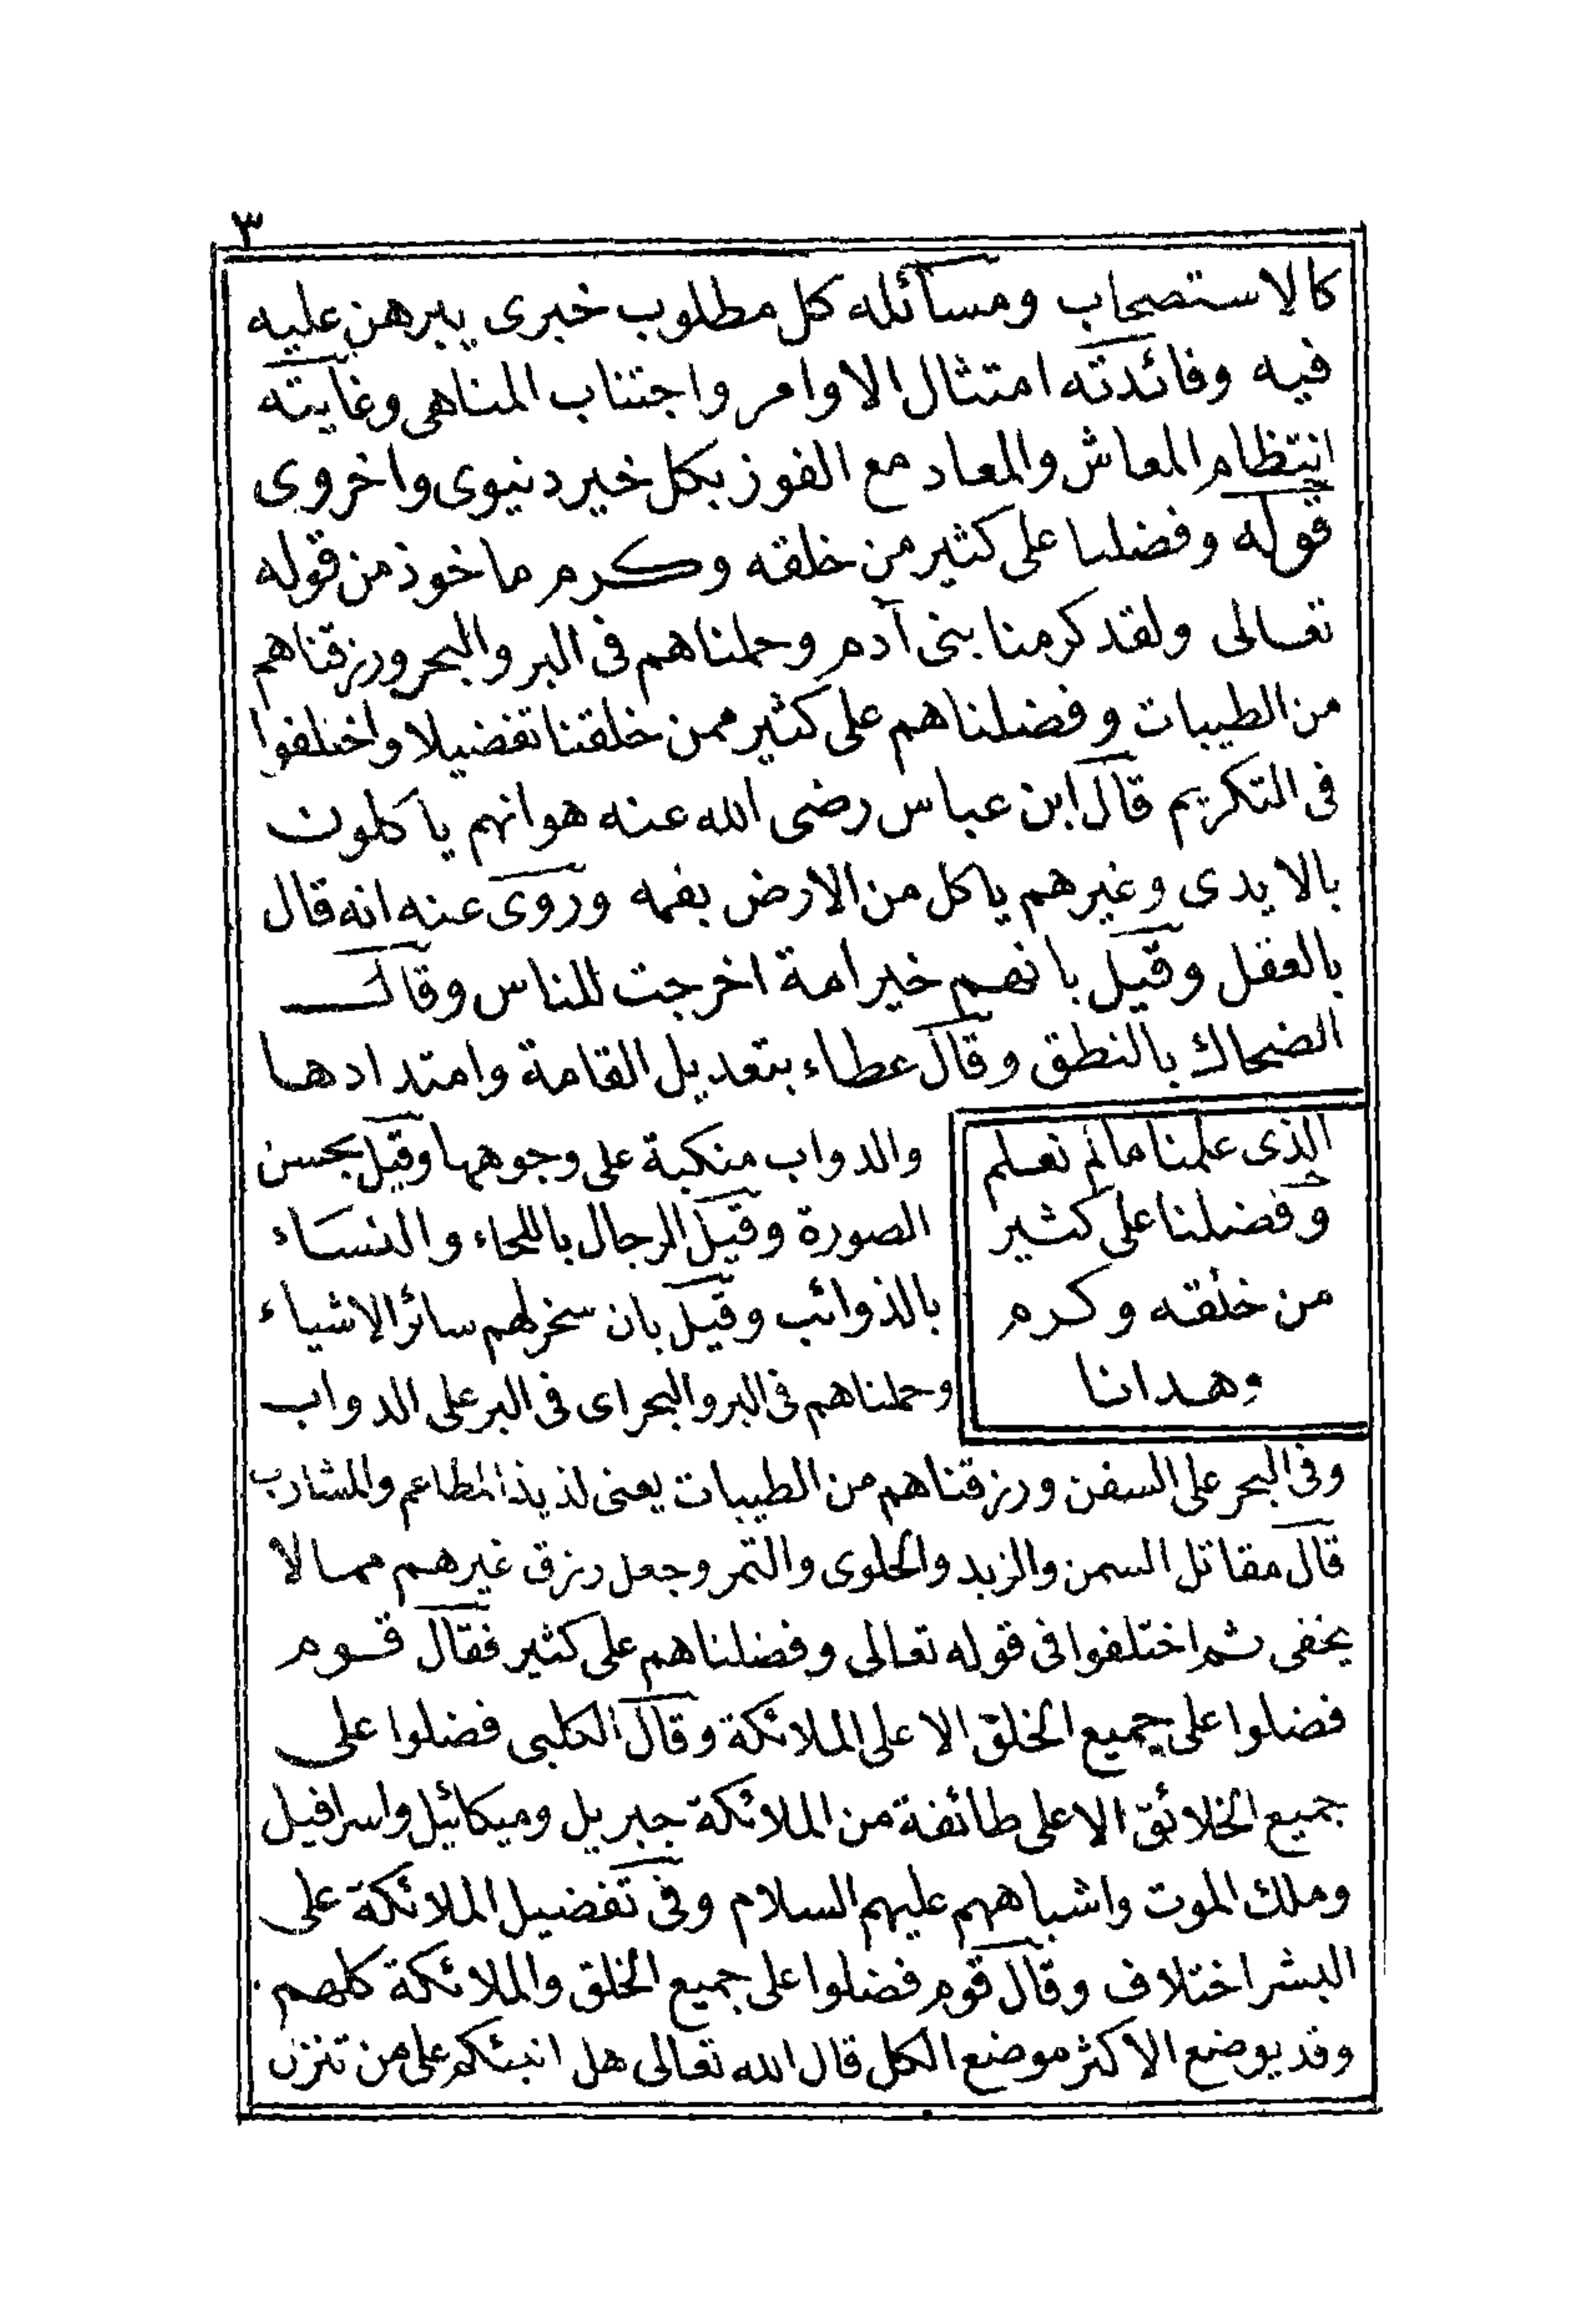 ٣
كالاستصحاب ومسائله كل مطلوب خبرى يبرهن عليه
فيه وفائدته امتثال الاوامر واجتناب المناهى وغايته
انتظام المعاش والمعاد مع الفوز بكل خير دنيوى واخروى
قوله وفضلنا على كثير من خلقه وكرم ماخوذ من قوله
تعالى ولقد كرمنا بنى آدم وحملناهم فى البر والبحر ورزقناهم
من الطيبات وفضلناهم على كثير ممن خلقنا تفضيلا واختلفوا
فى التكريم قال ابن عباس رضى الله عنه هو انهم ياكلون
بالايدى وغيرهم ياكل من الارض بفمه وروى عنه انه قال
بالعقل وقيل بانهم خير امة اخرجت للناس وقال
الضحاك بالنطق وقال عطاء بتعديل القامة وامتدادها
والدواب منكبة على وجوهها وقيل بحسن
الصورة وقيل الرجال باللحاء والنساء
بالذوائب وقيل بان سخر لهم سائر الاشياء
وحملناهم فى البر والبحر اى فى البر على الدواب
الذى علمنا ما لم نعلم
وفضلنا على كثير
من خلقه وكرم
وهدانا
وفى البحر على السفن ورزقناهم من الطيبات يعنى لذيذ المطاعم والمشارب
قال مقاتل السمن والزبد والحلوى والتمر وجعل رزق غيرهم مما لا
يخفى ثم اختلفوا فى قوله تعالى وفضلناهم على كثير فقال قوم
فضلوا على جميع الخلق الا على الملائكة وقال الكلبى فضلوا على
جميع الخلائق الا على طائفة من الملائكة جبريل وميكائيل واسرافيل
وملك الموت واشباههم عليهم السلام وفى تفضيل الملائكة على
البشر اختلاف وقال قوم فضلوا على جميع الخلق والملائكة كلهم
وقد يوضع الاكثر موضع الكل قال الله تعالى هل انبئكم على من تنزل